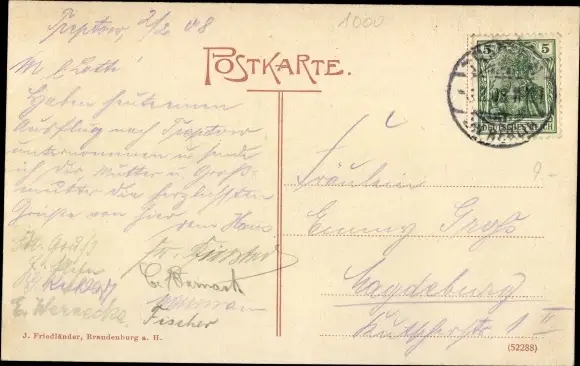 Treptow, 2/2 08
1000
POSTKARTE.
M. l. Lotte!
Haben heute einen
Ausflug nach Treptow
unternommen u. sende
ich dir, Mutter u. Groß-
mutter die herzlichsten
Grüße von hier
dein Hans
Fischer
E. Wernecke.
5 5
DEUTSCHES REICH
Fräulein
Emmy Groß
Magdeburg
1 II
J. Friedländer, Brandenburg a. H.
(52288)